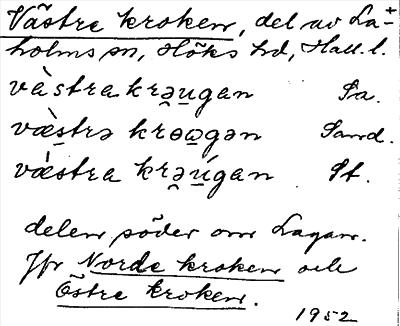 Västra kroken, del av La-
holms sn, Höks hd, Hall. l.
vàstra krə̯u̱gan Sa.
væ̀strə krɵωgən Sand.
væ̀stra krə̯úgan St.
delen söder om Lagan.
Jfr Norde kroken och
Östre kroken.
1952